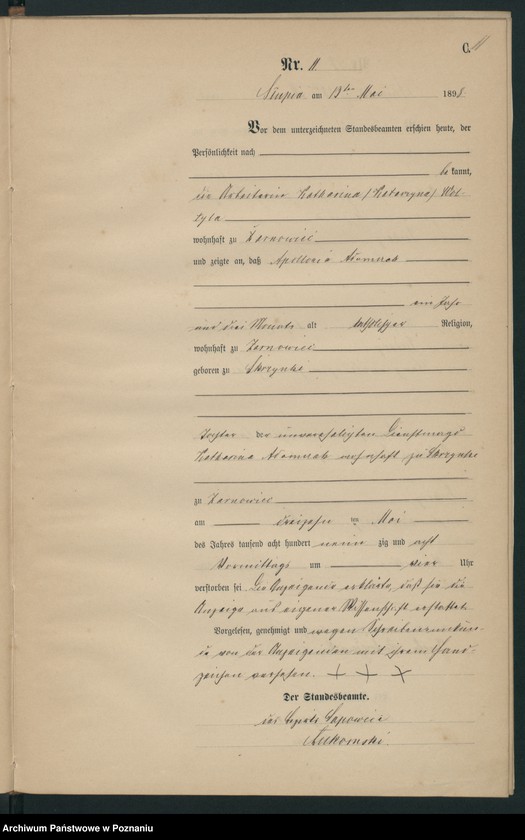 C. 11
Nr. 11.
Slupia am 13ten Mai 1898.
Vor dem unterzeichneten Standesbeamten erschien heute, der
Persönlichkeit nach
bekannt,
die Arbeiterin Katharina (Katarzyna)
wohnhaft zu Zarnowiec
und zeigte an, daß Apollonia Adamczak
ein Jahr
und drei Monate alt katholischer Religion,
wohnhaft zu Zarnowiec
geboren zu Skrzynki
Tochter der unverehelichten Dienstmagd
Katharina Adamczak wohnhaft zu Skrzynki
zu Zarnowiec
am dreizehn ten Mai
des Jahres tausend acht hundert neun zig und acht
Vormittags um vier Uhr
verstorben sei. Die Anzeigende erklärte, daß sie die
Anzeige aus eigener Wissenschaft erstattet.
Vorgelesen, genehmigt und wegen Schreibensunkun-
de von der Anzeigenden mit ihrem Hand-
zeichen versehen. + + +
Der Standesbeamte.
Archiwum Państwowe w Poznaniu